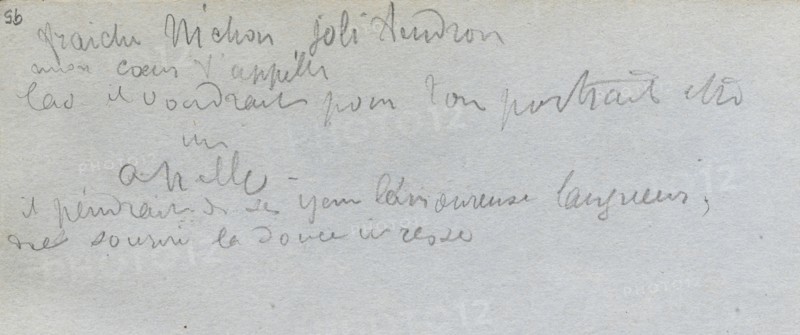 56
fraiche Nichon joli tendron
mon coeur t'appelle
il voudrait pour ton portrait être
un
apelle -
il peindrait de ses yeux l'amoureuse langueur,
du sourir la douce ivresse